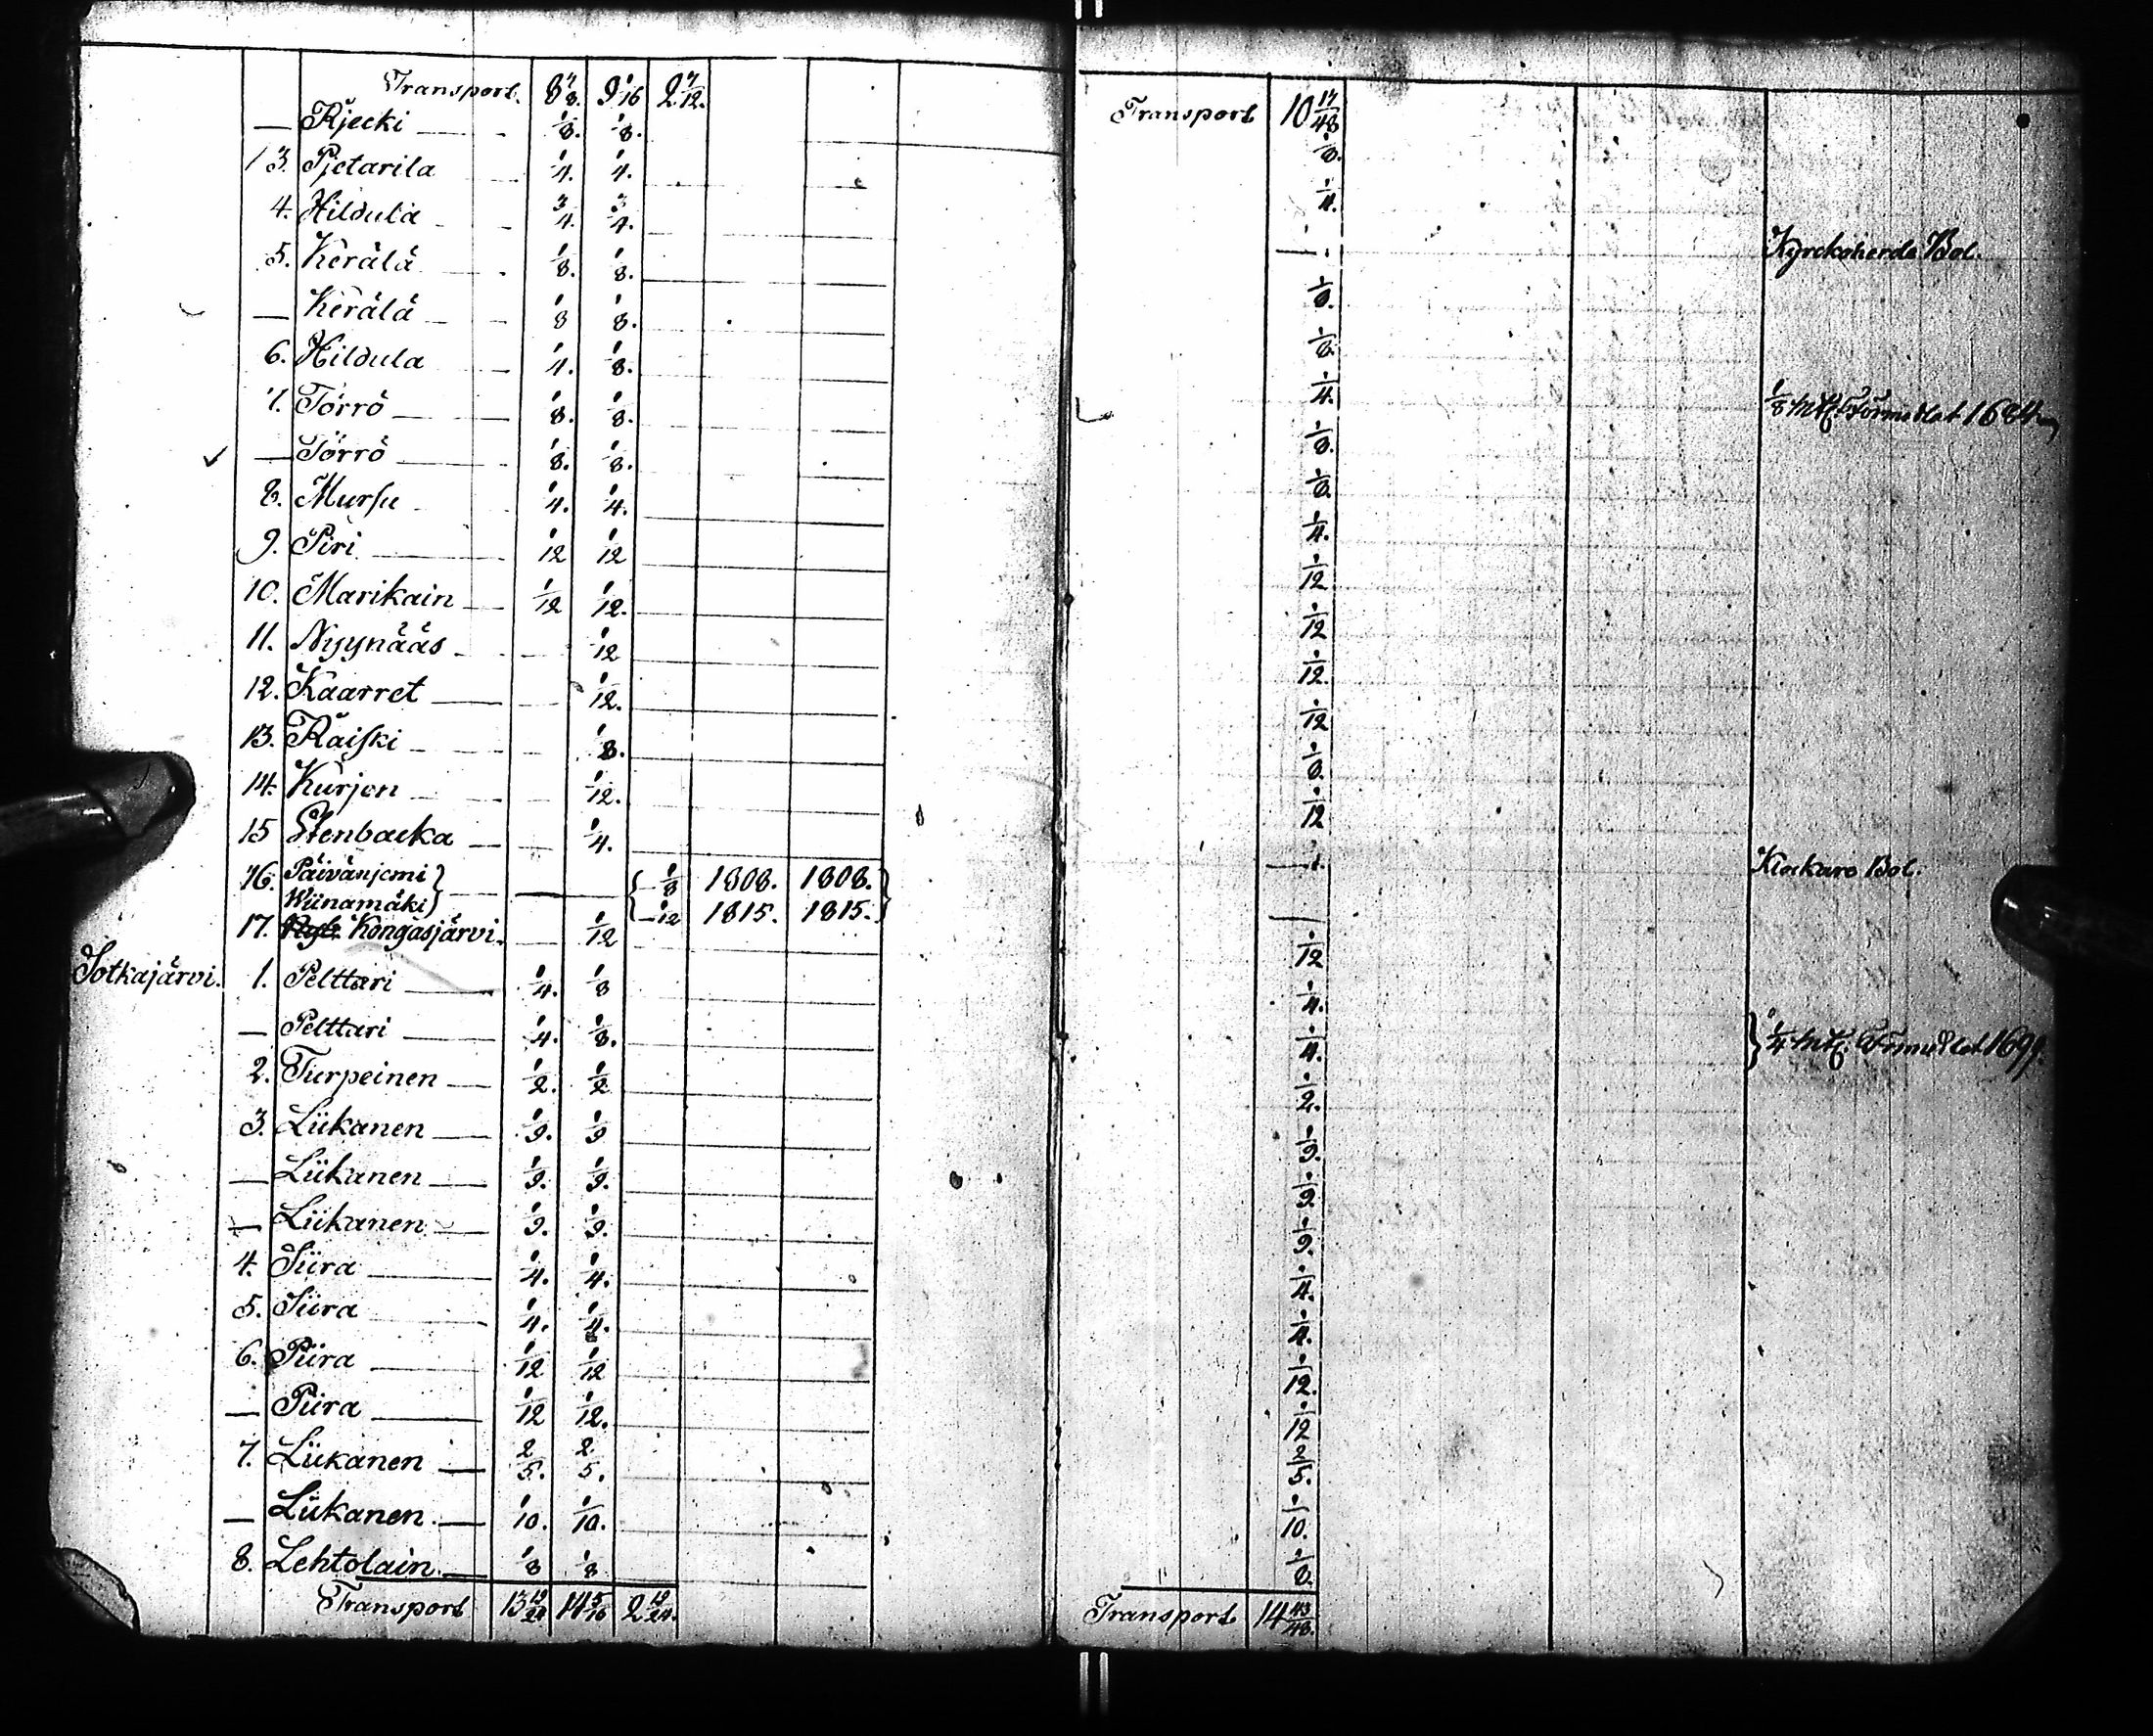 Transport. 8 7/8. 9 1/16 2 7/12.
— Rjecki 1/8. 1/8.
13. Pjetarila 1/4. 1/4.
4. Hildula 3/4. 3/4.
5. Kerälä 1/8. 1/8.
— Kerälä 1/8 1/8.
6. Hildula 1/4. 1/8.
7. Törrö 1/8. 1/8.
— Törrö 1/8. 1/8.
8. Mursu 1/4. 1/4.
9. Piri 1/12 1/12
10. Marikain 1/12 1/12.
11. Nyynääs 1/12
12. Kaarret 1/12.
13. Räiski 1/8.
14. Kurjen 1/12.
15 Stenbacka 1/4.
16. Päivänjemi } { 1/8 1808. 1808. }
Wiinamäki } { 1/12 1815. 1815. }
17. Kongasjärvi. 1/12
Sotkajärvi. 1. Pelttari 1/4. 1/8
— Pelttari 1/4. 1/8.
2. Turpeinen 1/2. 1/2
3. Liikanen 1/9. 1/9
— Liikanen 1/9. 1/9.
— Liikanen 1/9. 1/9.
4. Siira 1/4. 1/4.
5. Siira 1/4. 1/4.
6. Piira 1/12 1/12
— Piira 1/12 1/12.
7. Liikanen 2/5. 2/5.
— Liikanen 1/10. 1/10.
8. Lehtolain 1/8 1/8
Transport 13 19/24 14 5/16 2 19/24.
Transport 10 17/48
1/8.
1/4.
— Kyrckoherde Bol.
1/8.
1/8.
1/4. 1/8 mtl Förmedlat 1684
1/8.
1/8.
1/4.
1/12
1/12
1/12.
1/12
1/8.
1/12
— Klockare Bol.
—
1/12
1/4.
1/4. } 1/4 mtl Förmedlat 1699.
1/2.
1/9.
1/9
1/9.
1/4.
1/4.
1/12.
1/12
2/5.
1/10.
1/8.
Transport 14 43/48.